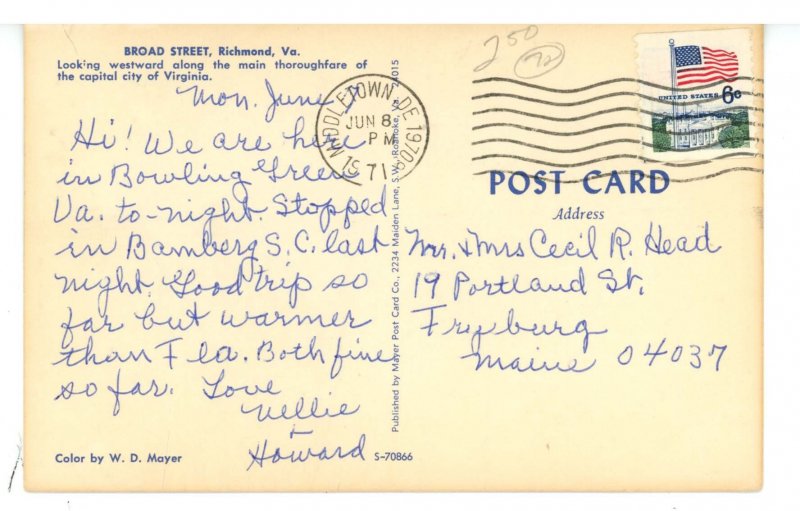 BROAD STREET, Richmond, Va.
Looking westward along the main thoroughfare of
the capital city of Virginia.
Mon. June
Hi! We are here
in Bowling Green
Va. to-night. Stopped
in Bamberg S.C. last
night. Good trip so
far but warmer
than Fla. Both fine
so far. Love
Nellie
+
Howard
Color by W. D. Mayer
S-70866
Published by Mayer Post Card Co., 2234 Maiden Lane, S.W., Roanoke, Va. 24015
MIDDLETOWN, DE 19709
JUN 8
PM
1971
250
72
UNITED STATES 6c
POST CARD
Address
Mr. & Mrs Cecil R. Head
19 Portland St.
Fryburg
Maine 04037